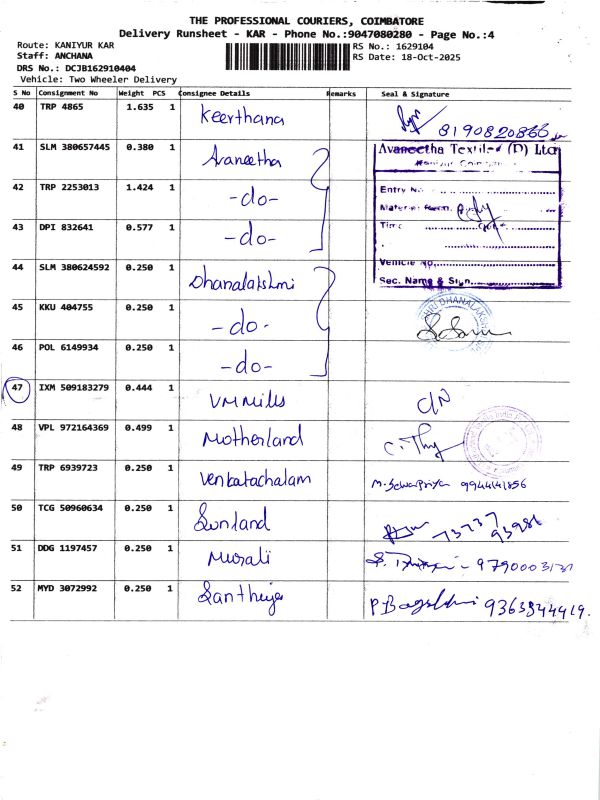 THE PROFESSIONAL COURIERS, COIMBATORE
Delivery Runsheet - KAR - Phone No.:9047080280 - Page No.:4
Route: KANIYUR KAR
RS No.: 1629104
Staff: ANCHANA
RS Date: 18-Oct-2025
DRS No.: DCJB162910404
Vehicle: Two Wheeler Delivery
S No Consignment No Weight PCS Consignee Details Remarks Seal & Signature
40 TRP 4865 1.635 1 Keerthana 8190820866
41 SLM 380657445 0.380 1 Avaneetha
Avaneetha Textiles (P) Ltd
42 TRP 2253013 1.424 1 -do-
Entry No.
43 DPI 832641 0.577 1 -do-
Time
Vehicle No.
Sec. Name & Sign
44 SLM 380624592 0.250 1 Dhanalakshmi
45 KKU 404755 0.250 1 -do-
46 POL 6149934 0.250 1 -do-
47 IXM 509183279 0.444 1 VM Mills
48 VPL 972164369 0.499 1 Motherland
49 TRP 6939723 0.250 1 Venkatachalam 9944141856
50 TCG 50960634 0.250 1 Sunland 73737 93986
51 DDG 1197457 0.250 1 Murali
52 MYD 3072992 0.250 1 Santhiya 9363844419.